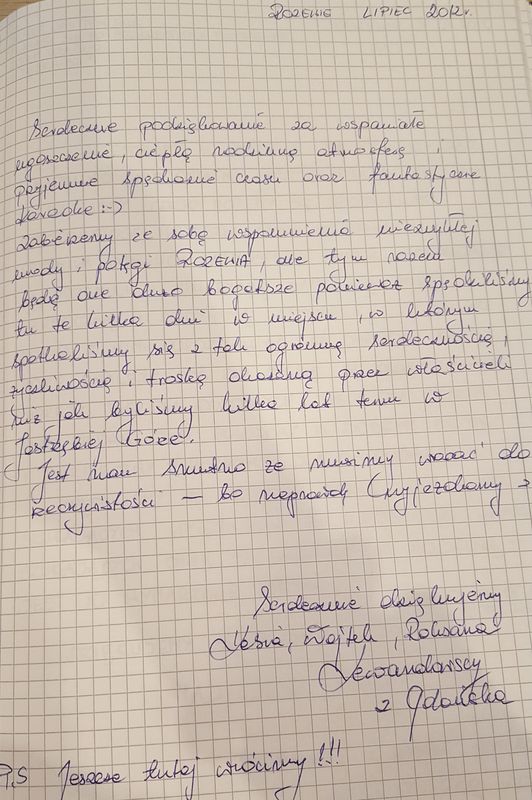 ROZEWIE LIPIEC 2012r.
Serdeczne podziękowanie za wspaniałe
ugoszczenie, ciepłą rodzinną atmosferę,
przyjemne spędzenie czasu oraz fantastyczne
doradce :-)
Zabierzemy ze sobą wspomnienia niezwykłej
urody i potęgi ROZEWIA, ale tym razem
będą one dużo bogatsze ponieważ spędziliśmy
tu te kilka dni w miejscu, w którym
spotkaliśmy się z tak ogromną serdecznością,
życzliwością i troską okazaną przez właścicieli
niż jak byliśmy kilka lat temu w
Jastrzębiej Górze.
Jest nam smutno że musimy wracać do
rzeczywistości — bo naprawdę wyjeżdżamy z
Serdecznie dziękujemy
Kasia, Wojtek, Roksana
Lewandowscy
z Gdańska
P.S Jeszcze tutaj wrócimy!!!